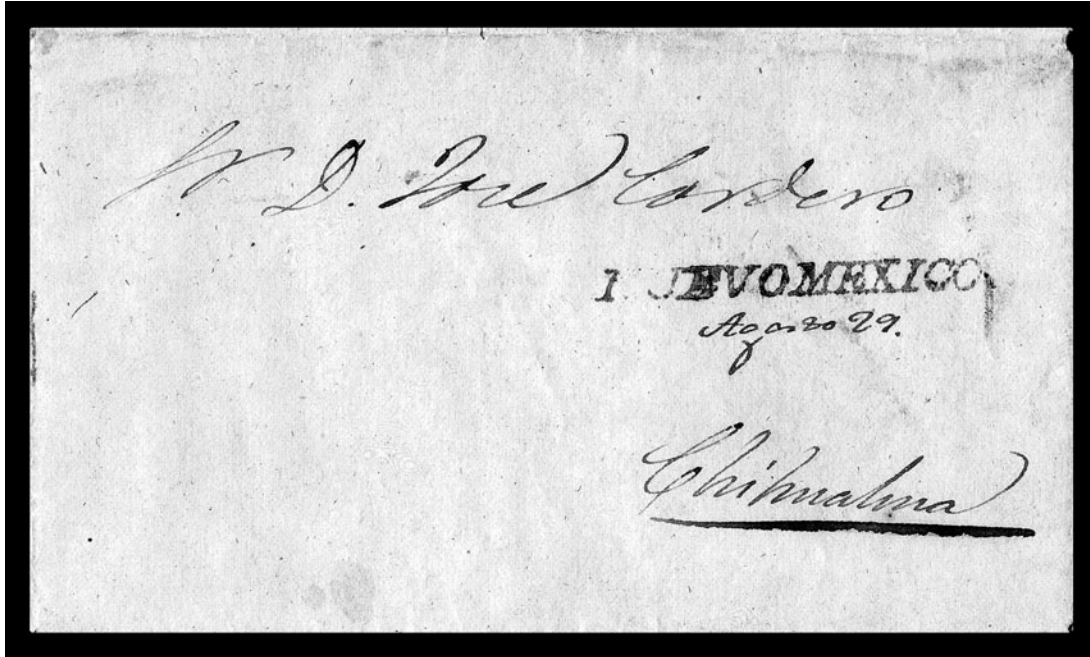 Sr. D. Jose Cordero
NUEVO MEXICO
Agosto 29.
Chihuahua